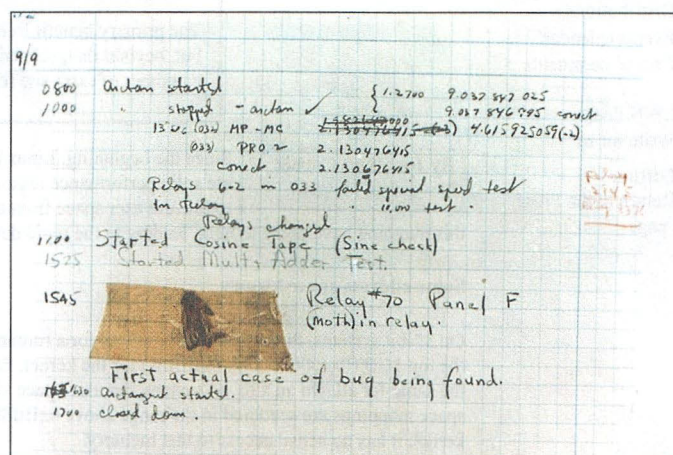 9/9
0800 Antan started
1000 " stopped - antan ✓ { 1.2700 9.037 847 025
9.037 846 995 conect
13"uc (032) MP-MC 2.130476415 (-3) 4.615925059(-2)
(033) PRO 2 2.130476415
conect 2.130676415
Relays 6-2 in 033 failed special speed test
In Relay " 11,000 test "
Relays changed
Relay
2145
Relay 3370
1100 Started Cosine Tape (Sine check)
1525 Started Mult+Adder Test.
1545 Relay #70 Panel F
(Moth) in relay.
First actual case of bug being found.
1630 antangent started.
1700 closed down.